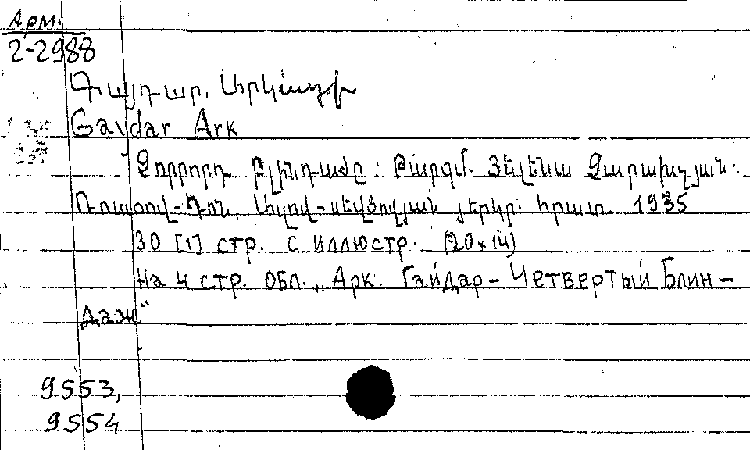 Арм.
2-2988
Գայդար, Արկադի
Gaydar Ark
Չորրորդ բլինդաժը: Թարգմ. Հեղենա Չարախչյան.
Ռոստով-Դոն, Ազով-սևծովյան յերկր. հրատ. 1935
30 [1] стр. с иллюстр. (20×14)
На 4 стр. обл. „Арк. Гайдар – Четвертый Блин-
даж"
9553,
9554